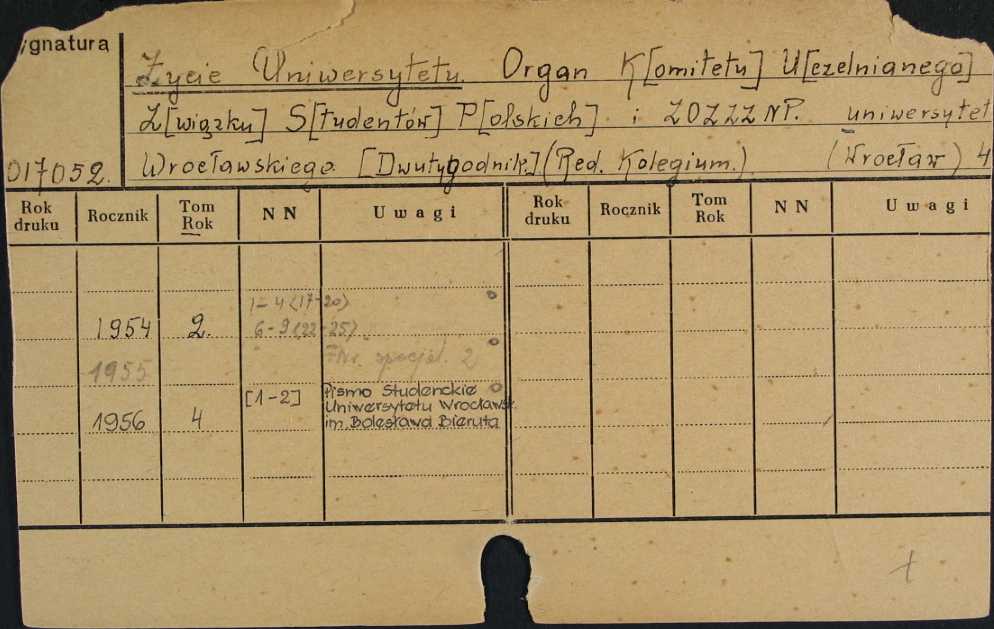 ignatura
Życie Uniwersytetu. Organ K[omitetu] U[czelnianego]
Z[wiązku] S[tudentów] P[olskich] i ZOZZZNP. uniwersytet
Wrocławskiego. [Dwutygodnik] (Red. Kolegium.) (Wrocław) 4
017052.
Rok druku Rocznik Tom Rok NN Uwagi Rok druku Rocznik Tom Rok NN Uwagi
1-4 (17-20)
1954 2. 6-9 (22-25)
1955 Nr. specjal. 2
[1-2] Pismo Studenckie
Uniwersytetu Wrocławsk.
1956 4 im. Bolesława Bieruta